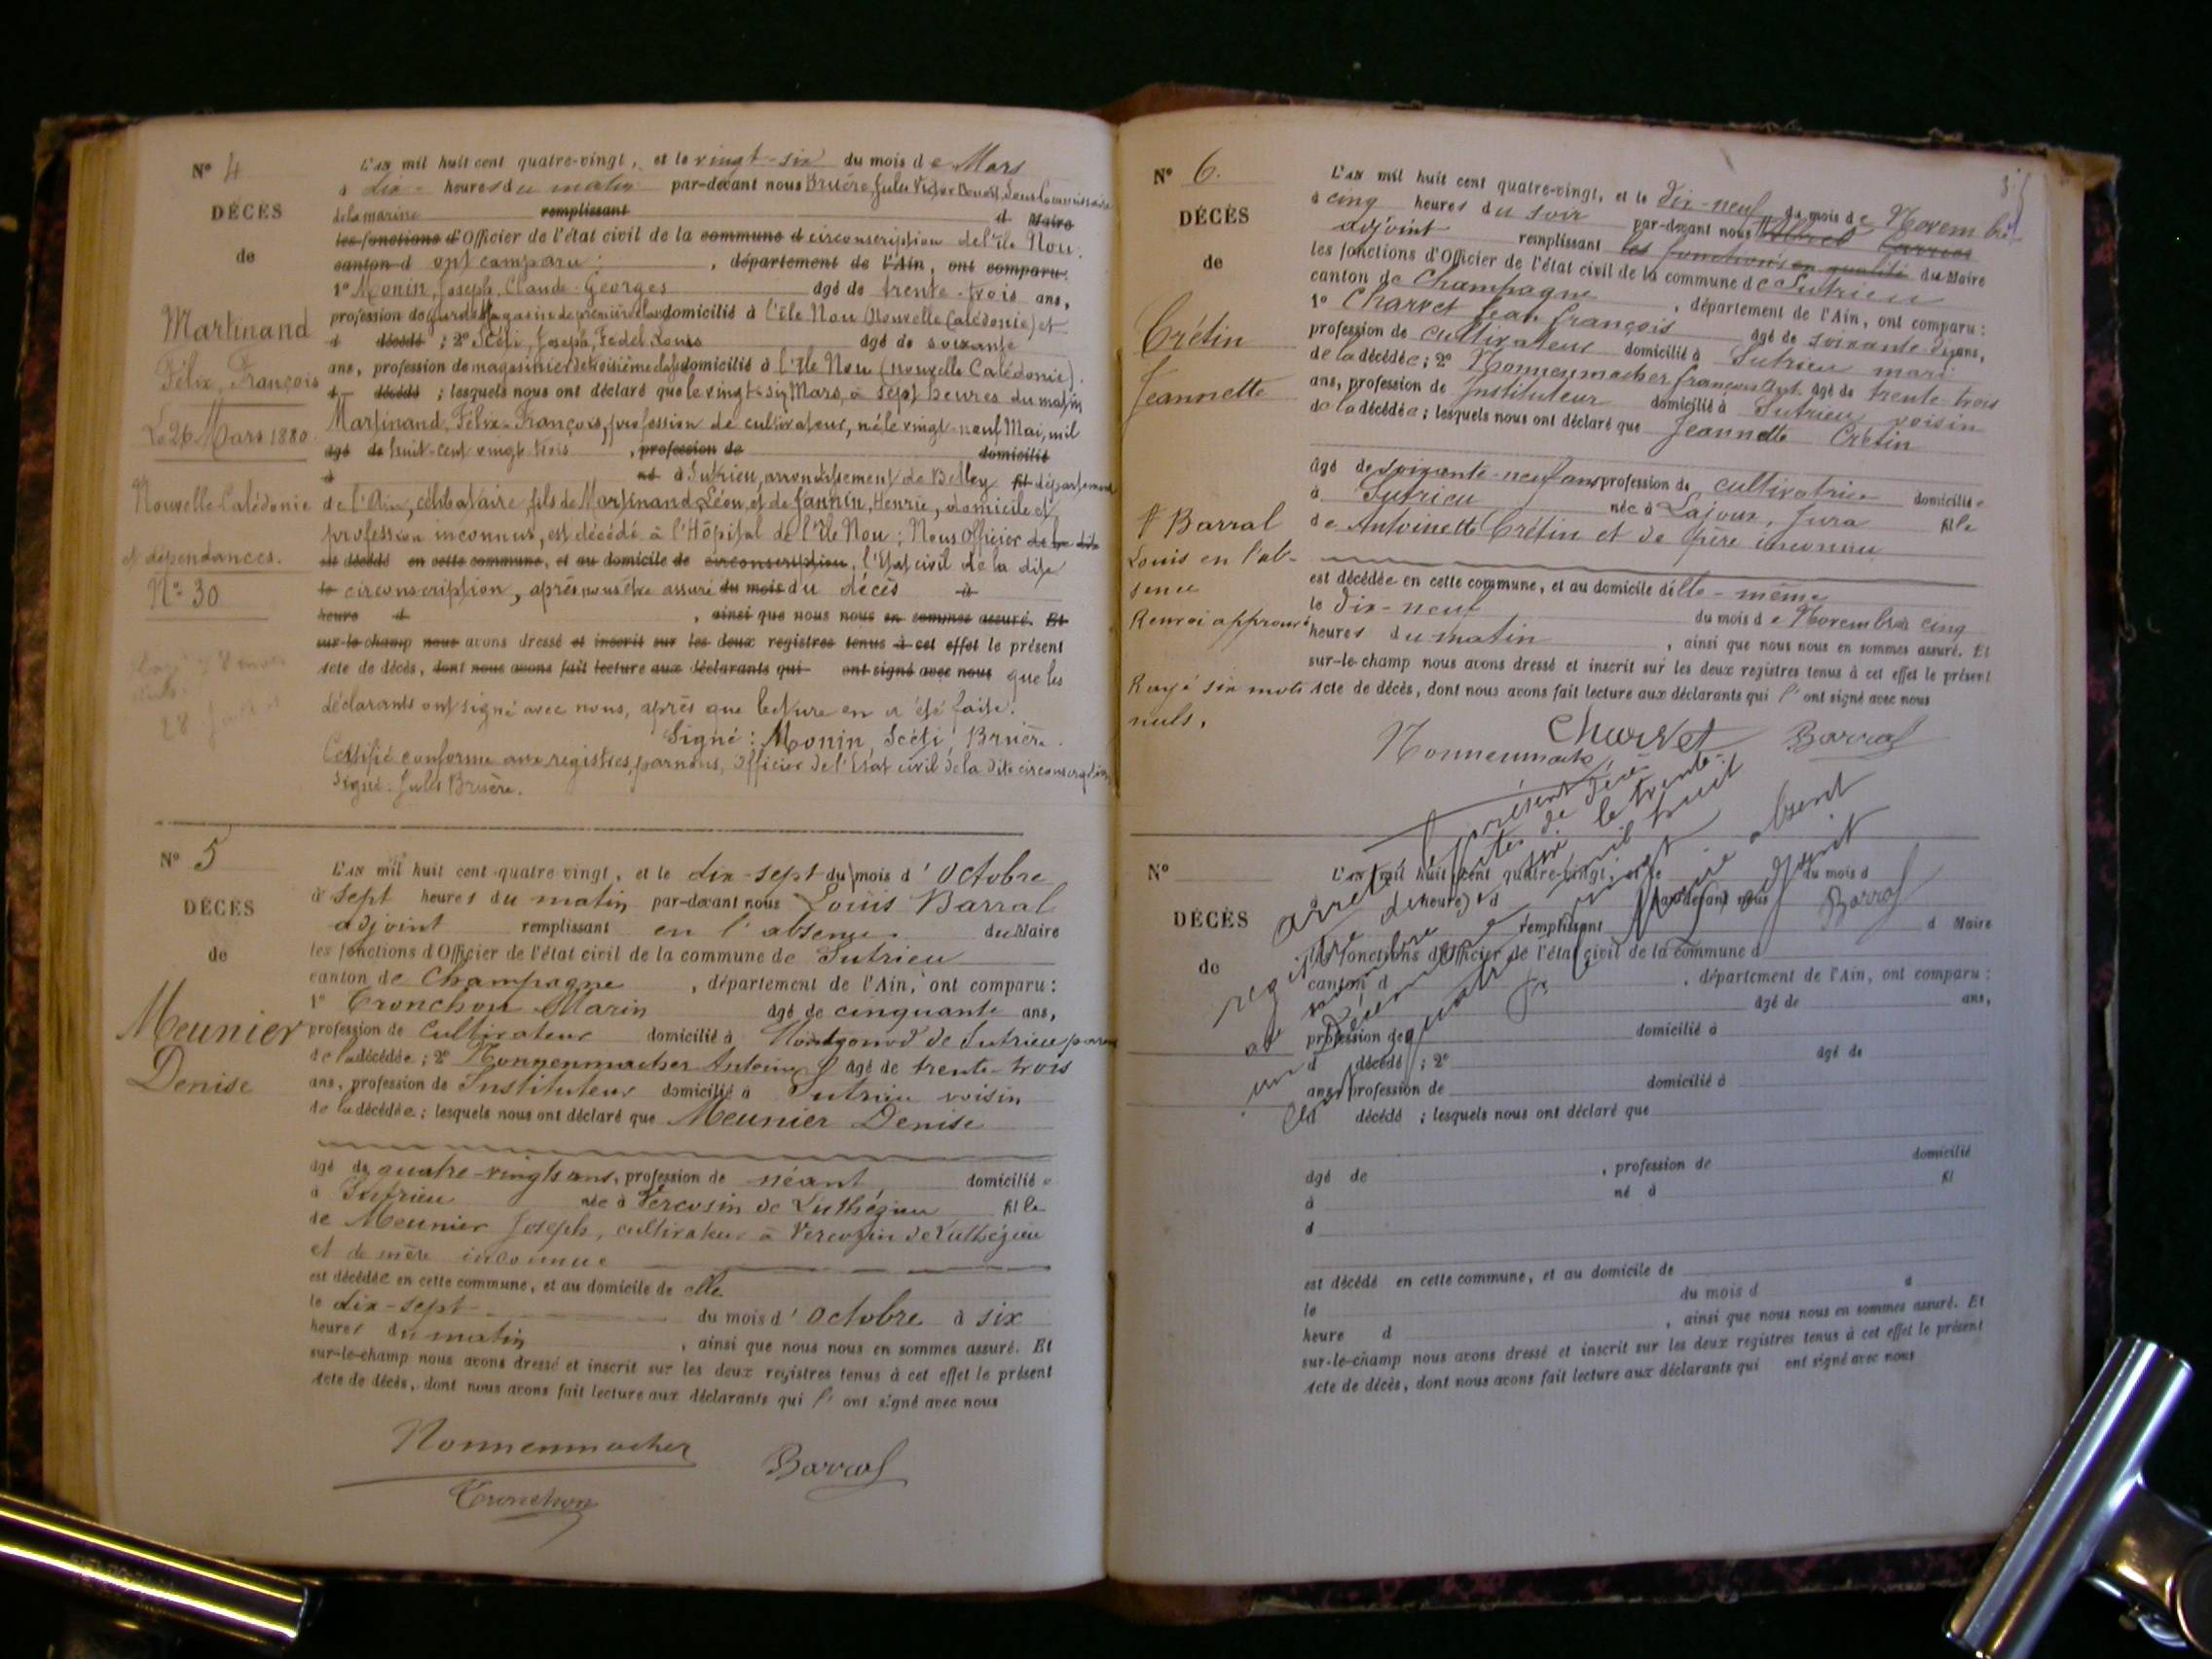 N° 4
DÉCÈS
de
Martinand
Félix, François
Le 26 Mars 1880.
Nouvelle Calédonie
et dépendances.
N° 30
L'AN mil huit cent quatre-vingt, et le vingt-six du mois de Mars
à dix heures du matin par-devant nous Bruère, Jules Victor Benoît, Sous Commissaire
de la marine remplissant d Maire
les fonctions d'Officier de l'état civil de la commune d circonscription de l'île Nou.
canton d ont comparu : , département de l'Ain, ont comparu :
1° Monin, Joseph, Claude-Georges âgé de trente-trois ans,
profession de garde Magasin de première classe domicilié à l'île Nou (Nouvelle Calédonie) et
d décédé ; 2° Scéti, Joseph, Fedel, Louis âgé de soixante
ans, profession de magasinier de troisième classe domicilié à l'île Nou (nouvelle Calédonie).
d décédé ; lesquels nous ont déclaré que le vingt-six Mars, à sept heures du matin
Martinand, Félix-François, profession de cultivateur, né le vingt-neuf Mai, mil
âgé de huit-cent vingt trois , profession de domicilié
à né à Sutrieu, arrondissement de Belley fil département
de l'Ain, célibataire, fils de Martinand, Léon, et de Jannin, Henrie, domicile et
profession inconnus, est décédé à l'Hôpital de l'île Nou ; Nous Officier de la dite
est décédé en cette commune, et au domicile de circonscription, l'Etat civil de la dite
le circonscription, après nous être assuré du mois du décès à
heure d , ainsi que nous nous en sommes assuré. Et
sur-le-champ nous avons dressé et inscrit sur les deux registres tenus à cet effet le présent
acte de décès, dont nous avons fait lecture aux déclarants qui ont signé avec nous que les
déclarants ont signé avec nous, après que lecture en a été faite.
Signé : Monin, Scéti, Bruère.
Certifié conforme aux registres, par nous, Officier de l'Etat civil de la dite circonscription
Signé : Jules Bruère.
N° 5
DÉCÈS
de
Meunier
Denise
L'AN mil huit cent quatre-vingt, et le dix-sept du mois d'Octobre
à sept heures du matin par-devant nous Louis Barral
adjoint remplissant en l'absence du Maire
les fonctions d'Officier de l'état civil de la commune de Sutrieu
canton de Champagne , département de l'Ain, ont comparu :
1° Tronchon Marin âgé de cinquante ans,
profession de Cultivateur domicilié à Montgonod de Sutrieu parent
de la décédée ; 2° Nonnenmacher Antoine f âgé de trente-trois
ans, profession de Instituteur domicilié à Sutrieu voisin
de la décédée ; lesquels nous ont déclaré que Meunier Denise
âgé de quatre-vingts ans, profession de néant, domiciliée
à Sutrieu née à Vercosin de Luthézieu fille
de Meunier Joseph, cultivateur à Vercosin de Luthézieu
et de mère inconnue
est décédée en cette commune, et au domicile de elle
le dix-sept du mois d'Octobre à six
heures du matin , ainsi que nous nous en sommes assuré. Et
sur-le-champ nous avons dressé et inscrit sur les deux registres tenus à cet effet le présent
acte de décès, dont nous avons fait lecture aux déclarants qui l'ont signé avec nous
Nonnenmacher
Barral
Tronchon
N° 6.
DÉCÈS
de
Crétin
Jeannette
# Barral
Louis en l'ab-
sence
Renvoi approuvé
Rayé six mots
nuls.
L'AN mil huit cent quatre-vingt, et le dix-neuf du mois de Novembre
à cinq heures du soir par-devant nous #
adjoint remplissant les fonctions en qualité du Maire
les fonctions d'Officier de l'état civil de la commune de Sutrieu
canton de Champagne , département de l'Ain, ont comparu :
1° Charvet Jean françois âgé de soixante dix ans,
profession de cultivateur domicilié à Sutrieu mari
de la décédée ; 2° Nonnenmacher françois Ant. âgé de trente-trois
ans, profession de Instituteur domicilié à Sutrieu voisin
de la décédée ; lesquels nous ont déclaré que Jeannette Crétin
âgé de soixante-neuf ans profession de cultivatrice domiciliée
à Sutrieu née à Lajoux, Jura fille
de Antoinette Crétin et de père inconnu
est décédée en cette commune, et au domicile d'elle-même
le dix-neuf du mois de Novembre à cinq
heures du matin , ainsi que nous nous en sommes assuré. Et
sur-le-champ nous avons dressé et inscrit sur les deux registres tenus à cet effet le présent
acte de décès, dont nous avons fait lecture aux déclarants qui l'ont signé avec nous
Charvet
Barral
Nonnenmacher
N°
DÉCÈS
de
arrêté le présent
registre de
le trente
un décembre mil huit
cent quatre vingt
Maire absent
Barral
L'AN mil huit cent quatre-vingt, et le du mois d
à heure d par-devant nous
remplissant d Maire
les fonctions d'Officier de l'état civil de la commune d
canton d , département de l'Ain, ont comparu :
âgé de ans,
profession de domicilié à
d décédé ; 2° âgé de
ans, profession de domicilié à
d décédé ; lesquels nous ont déclaré que
âgé de , profession de domicilié
à né à fil
d
est décédé en cette commune, et au domicile de
le du mois d à
heure d , ainsi que nous nous en sommes assuré. Et
sur-le-champ nous avons dressé et inscrit sur les deux registres tenus à cet effet le présent
acte de décès, dont nous avons fait lecture aux déclarants qui ont signé avec nous